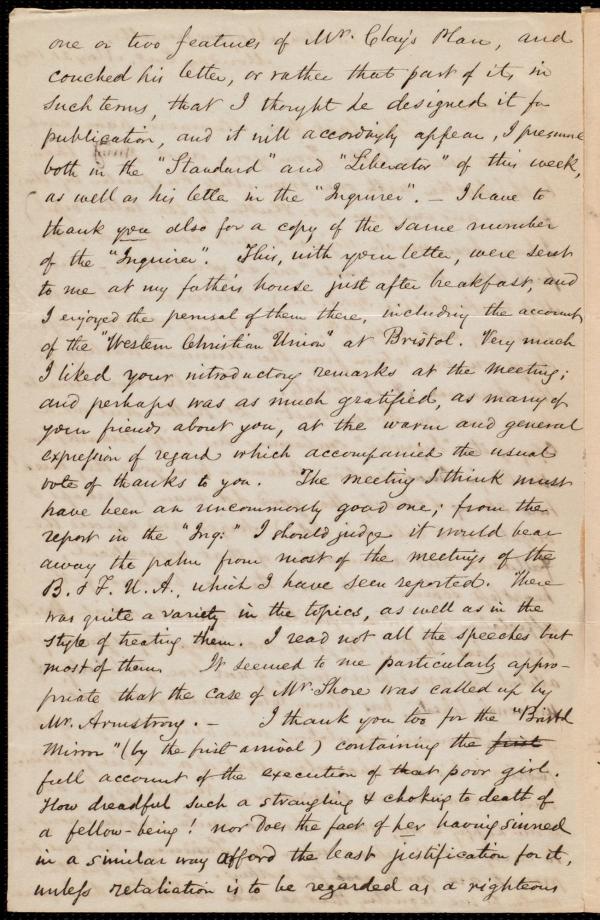 one or two features of Mr. Clay's Plan, and
couched his letter, or rather that part of it, in
such terms, that I thought he designed it for
publication, and it will accordingly appear, I presume
both in the "Standard" and "Liberator" of this week,
as well as his letter in the "Inquirer". — I have to
thank you also for a copy of the same number
of the "Inquirer". This, with your letter, were sent
to me at my father's house just after breakfast, and
I enjoyed the perusal of them there, including the account
of the "Western Christian Union" at Bristol. Very much
I liked your introductory remarks at the meeting;
and perhaps was as much gratified, as many of
your friends about you, at the warm and general
expression of regard which accompanied the usual
vote of thanks to you. The meeting I think must
have been an uncommonly good one; from the
report in the "Inq:" I should judge it would bear
away the palm from most of the meetings of the
B. & F. U. A., which I have seen reported. There
was quite a variety in the topics, as well as in the
style of treating them. I read not all the speeches but
most of them. It seemed to me particularly appro-
priate that the case of Mr. Shore was called up by
Mr. Armstrong. — I thank you too for the "Bristol
Mirror" (by the first arrival) containing the first
full account of the execution of that poor girl.
How dreadful such a strangling & choking to death of
a fellow-being! nor does the fact of her having sinned
in a similar way afford the least justification for it,
unless retaliation is to be regarded as a righteous